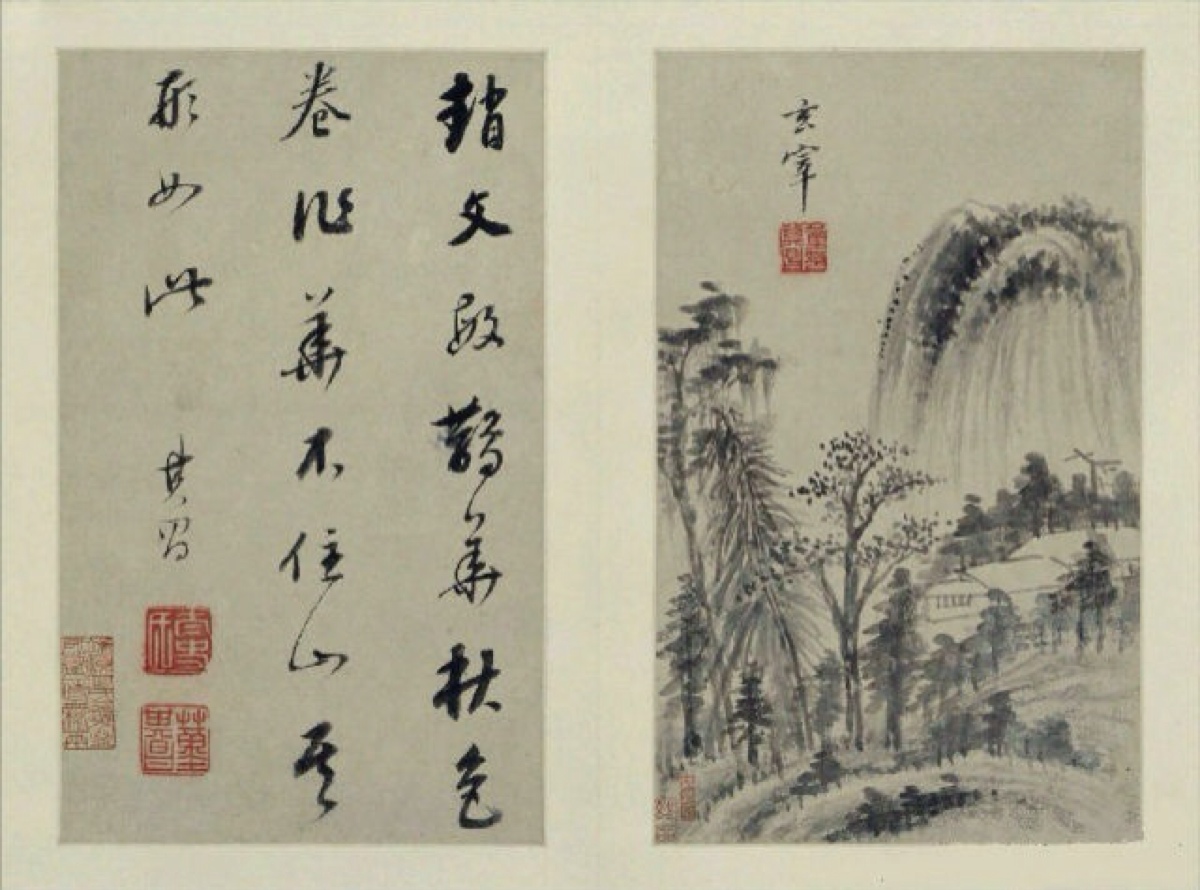 玄宰
趙文敏鵲華秋色
卷作華不住山其
形如此
其昌